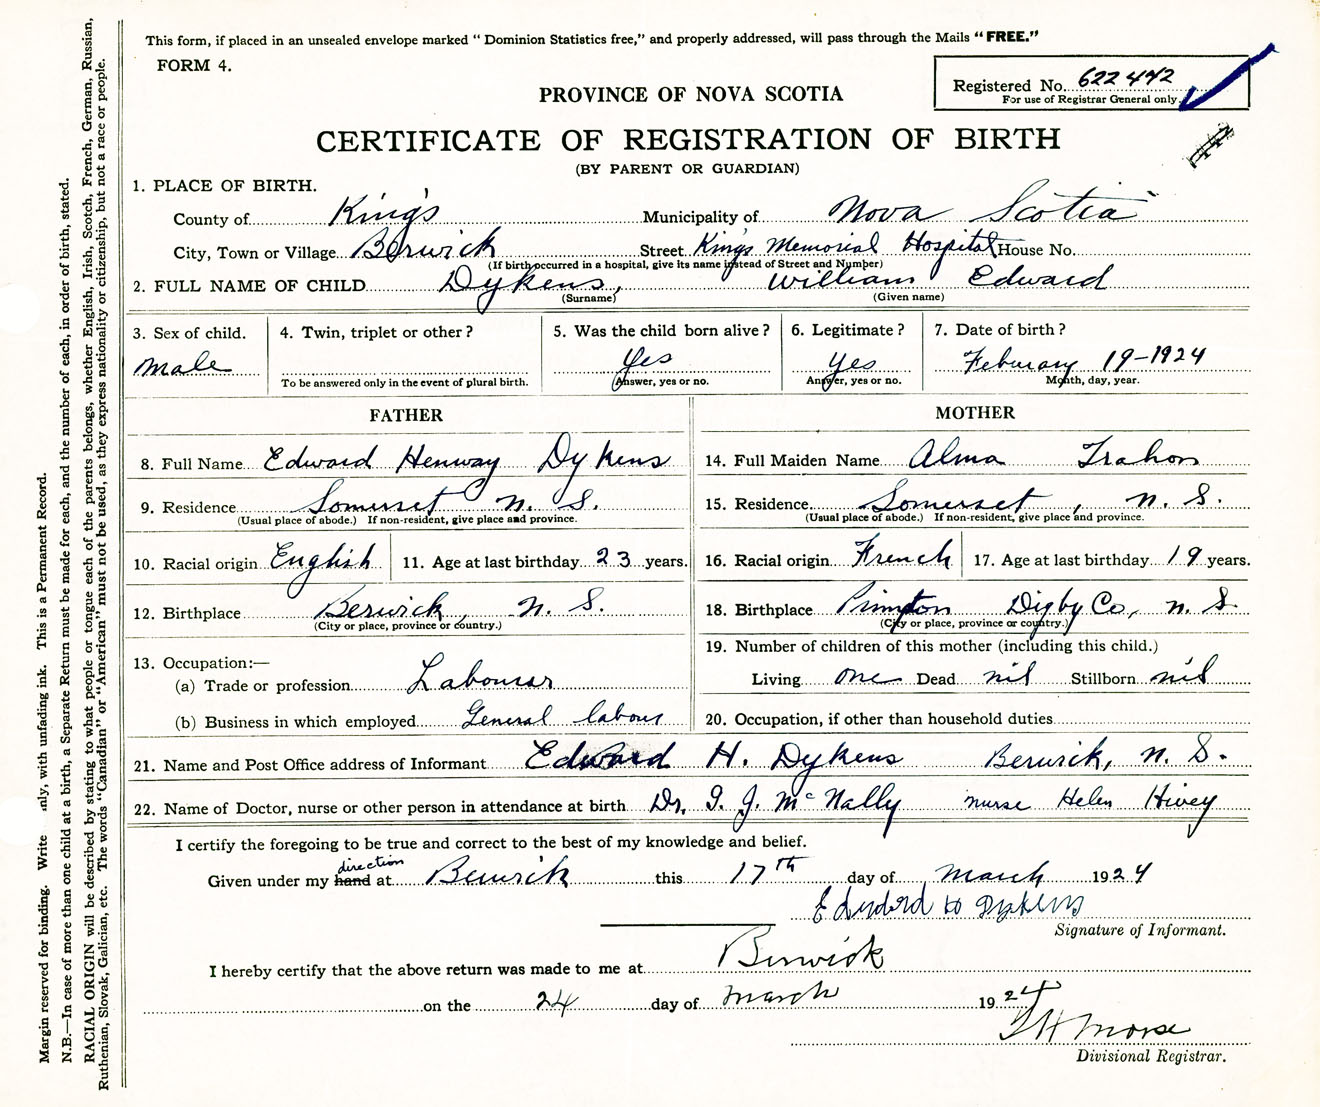 This form, if placed in an unsealed envelope marked "Dominion Statistics free," and properly addressed, will pass through the Mails "FREE."
FORM 4.
Registered No. 622442
For use of Registrar General only.
PROVINCE OF NOVA SCOTIA
CERTIFICATE OF REGISTRATION OF BIRTH
(BY PARENT OR GUARDIAN)
1. PLACE OF BIRTH.
County of King's Municipality of Nova Scotia
City, Town or Village Berwick Street King's Memorial Hospital House No.
(If birth occurred in a hospital, give its name instead of Street and Number)
2. FULL NAME OF CHILD Dykens, William Edward
(Surname) (Given name)
3. Sex of child. 4. Twin, triplet or other? 5. Was the child born alive? 6. Legitimate? 7. Date of birth?
male yes yes Feburary 19-1924
To be answered only in the event of plural birth. (Answer, yes or no. Answer, yes or no. Month, day, year.
FATHER MOTHER
8. Full Name Edward Henway Dykens 14. Full Maiden Name Alma Trahon
9. Residence Somerset N. S. 15. Residence Somerset, N. S.
(Usual place of abode.) If non-resident, give place and province. (Usual place of abode.) If non-resident, give place and province.
10. Racial origin English 11. Age at last birthday 23 years. 16. Racial origin French 17. Age at last birthday 19 years.
12. Birthplace Berwick, N. S. 18. Birthplace Digby Co, N. S
(City or place, province or country.) (City or place, province or country.)
13. Occupation:— 19. Number of children of this mother (including this child.)
(a) Trade or profession Labourer Living one Dead nil Stillborn nil
(b) Business in which employed General labour 20. Occupation, if other than household duties
21. Name and Post Office address of Informant Edward H. Dykens Berwick, N. S.
22. Name of Doctor, nurse or other person in attendance at birth Dr. I. J. McNally nurse Helen
I certify the foregoing to be true and correct to the best of my knowledge and belief.
direction
Given under my hand at Berwick this 17th day of March 1924
Edward H Dykens
Signature of Informant.
I hereby certify that the above return was made to me at Berwick
on the 24 day of March 1924
Morse
Divisional Registrar.
Margin reserved for binding. Write only, with unfading ink. This is a Permanent Record.
N.B.—In case of more than one child at a birth, a Separate Return must be made for each, and the number of each, in order of birth, stated.
RACIAL ORIGIN will be described by stating to what people or tongue each of the parents belongs, whether English, Irish, Scotch, French, German, Russian,
Ruthenian, Slovak, Galician, etc. The words "Canadian" or "American" must not be used, as they express nationality or citizenship, but not a race or people.